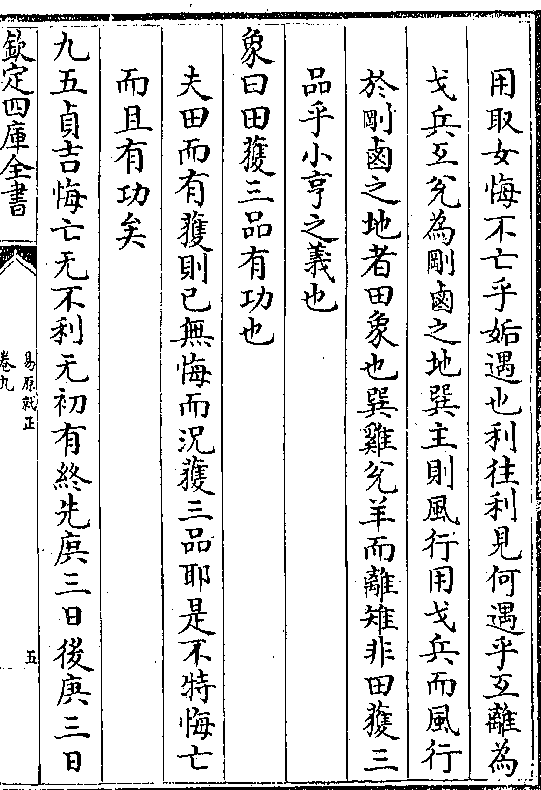 用取女悔不亡乎姤遇也利往利見何遇乎互離為
戈兵互兊為剛鹵之地巽主則風行用戈兵而風行
於剛鹵之地者田象也巽雞兊羊而離雉非田獲三
品乎小亨之義也
象曰田獲三品有功也
夫田而有獲則已無悔而況獲三品耶是不特悔亡
而且有功矣
九五貞吉悔亡无不利无初有終先庚三日後庚三日
欽定四庫全書
易原就正
卷九
五